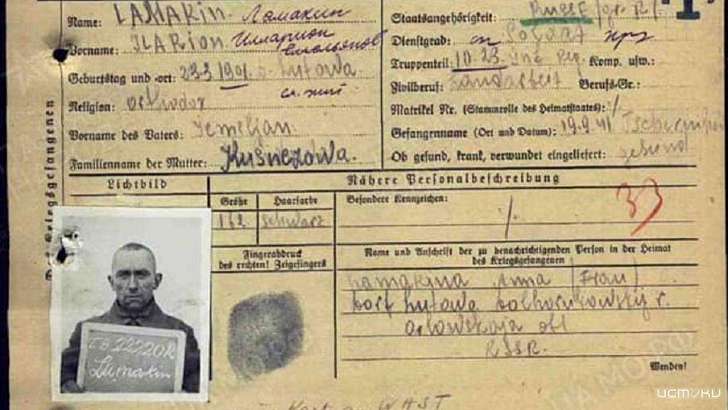 Name: LAMAKIN Ломакин
Vorname: ILARION Илларион Емельянов
Geburtstag und -ort: 22.3.190 Lutowa
Religion: orthodox
Vorname des Vaters: Jemeljan
Familienname der Mutter: Kusnezowa.
Staatsangehörigkeit: Russe
Dienstgrad: Soldat
Truppenteil: 10.23. Inf. Reg. Komp. usw.:
Zivilberuf: Landarbeit Berufs-Gr.:
Matrikel Nr. (Stammrolle des Heimatstaates): %
Gefangennahme (Ort und Datum): 19.9.41
Ob gesund, krank, verwundet eingeliefert: gesund
des Kriegsgefangenen
Lichtbild
Nähere Personalbeschreibung
Größe Haarfarbe
Besondere Kennzeichen:
162 schwarz
%
33
Fingerabdruck
des rechten! Zeigefingers
Name und Anschrift der zu benachrichtigenden Person in der Heimat
des Kriegsgefangenen
Lamakina Anna (Frau)
Dorf Lutowa
Orlowskaja obl
RSSR.
Wenden!
Lamakin
WAST